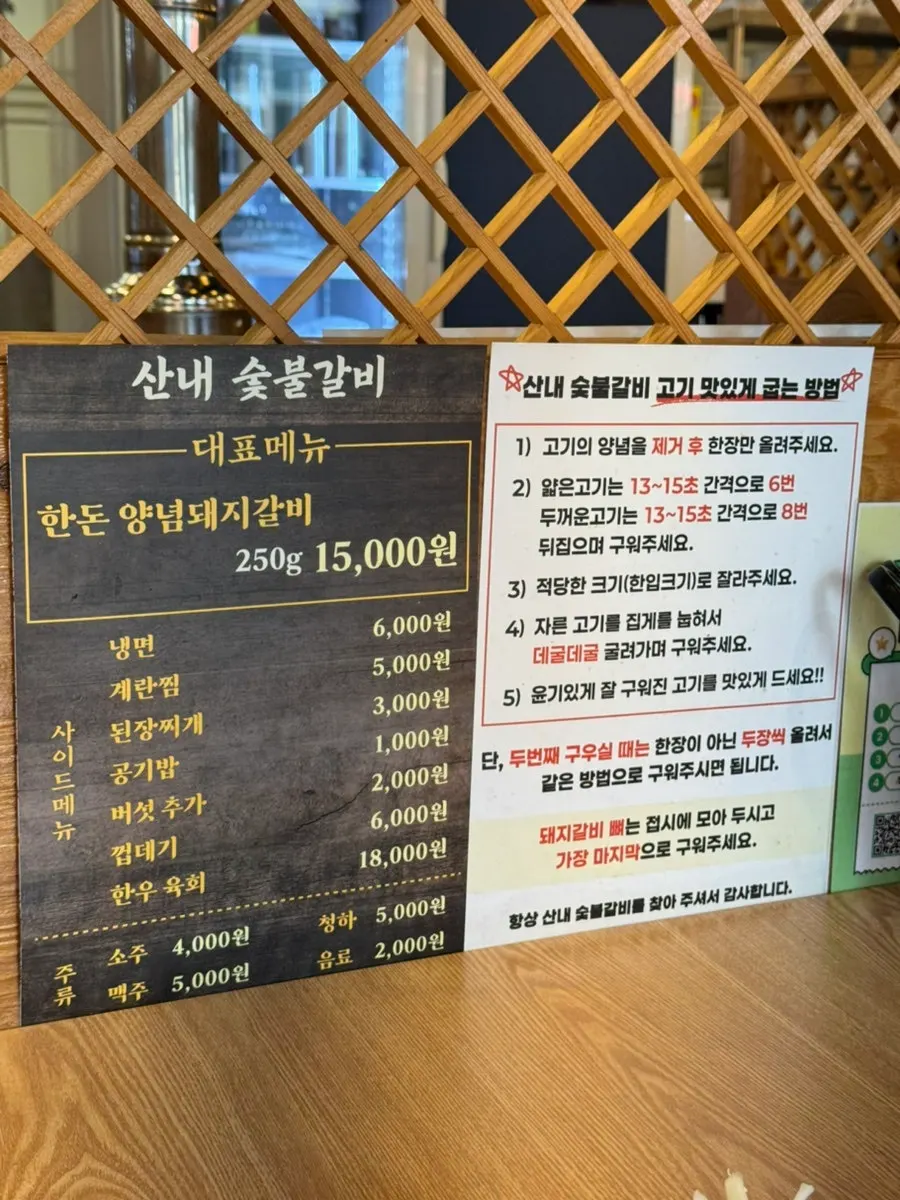 산내 숯불갈비
대표메뉴
한돈 양념돼지갈비
250g 15,000원
사이드메뉴
냉면 6,000원
계란찜 5,000원
된장찌개 3,000원
공기밥 1,000원
버섯 추가 2,000원
껍데기 6,000원
한우 육회 18,000원
주류
소주 4,000원 청하 5,000원
맥주 5,000원 음료 2,000원
산내 숯불갈비 고기 맛있게 굽는 방법
1) 고기의 양념을 제거 후 한장만 올려주세요.
2) 얇은고기는 13~15초 간격으로 6번
두꺼운고기는 13~15초 간격으로 8번
뒤집으며 구워주세요.
3) 적당한 크기(한입크기)로 잘라주세요.
4) 자른 고기를 집게를 눕혀서
데굴데굴 굴려가며 구워주세요.
5) 윤기있게 잘 구워진 고기를 맛있게 드세요!!
단, 두번째 구우실 때는 한장이 아닌 두장씩 올려서
같은 방법으로 구워주시면 됩니다.
돼지갈비 뼈는 접시에 모아 두시고
가장 마지막으로 구워주세요.
항상 산내 숯불갈비를 찾아 주셔서 감사합니다.
1
2
3
4